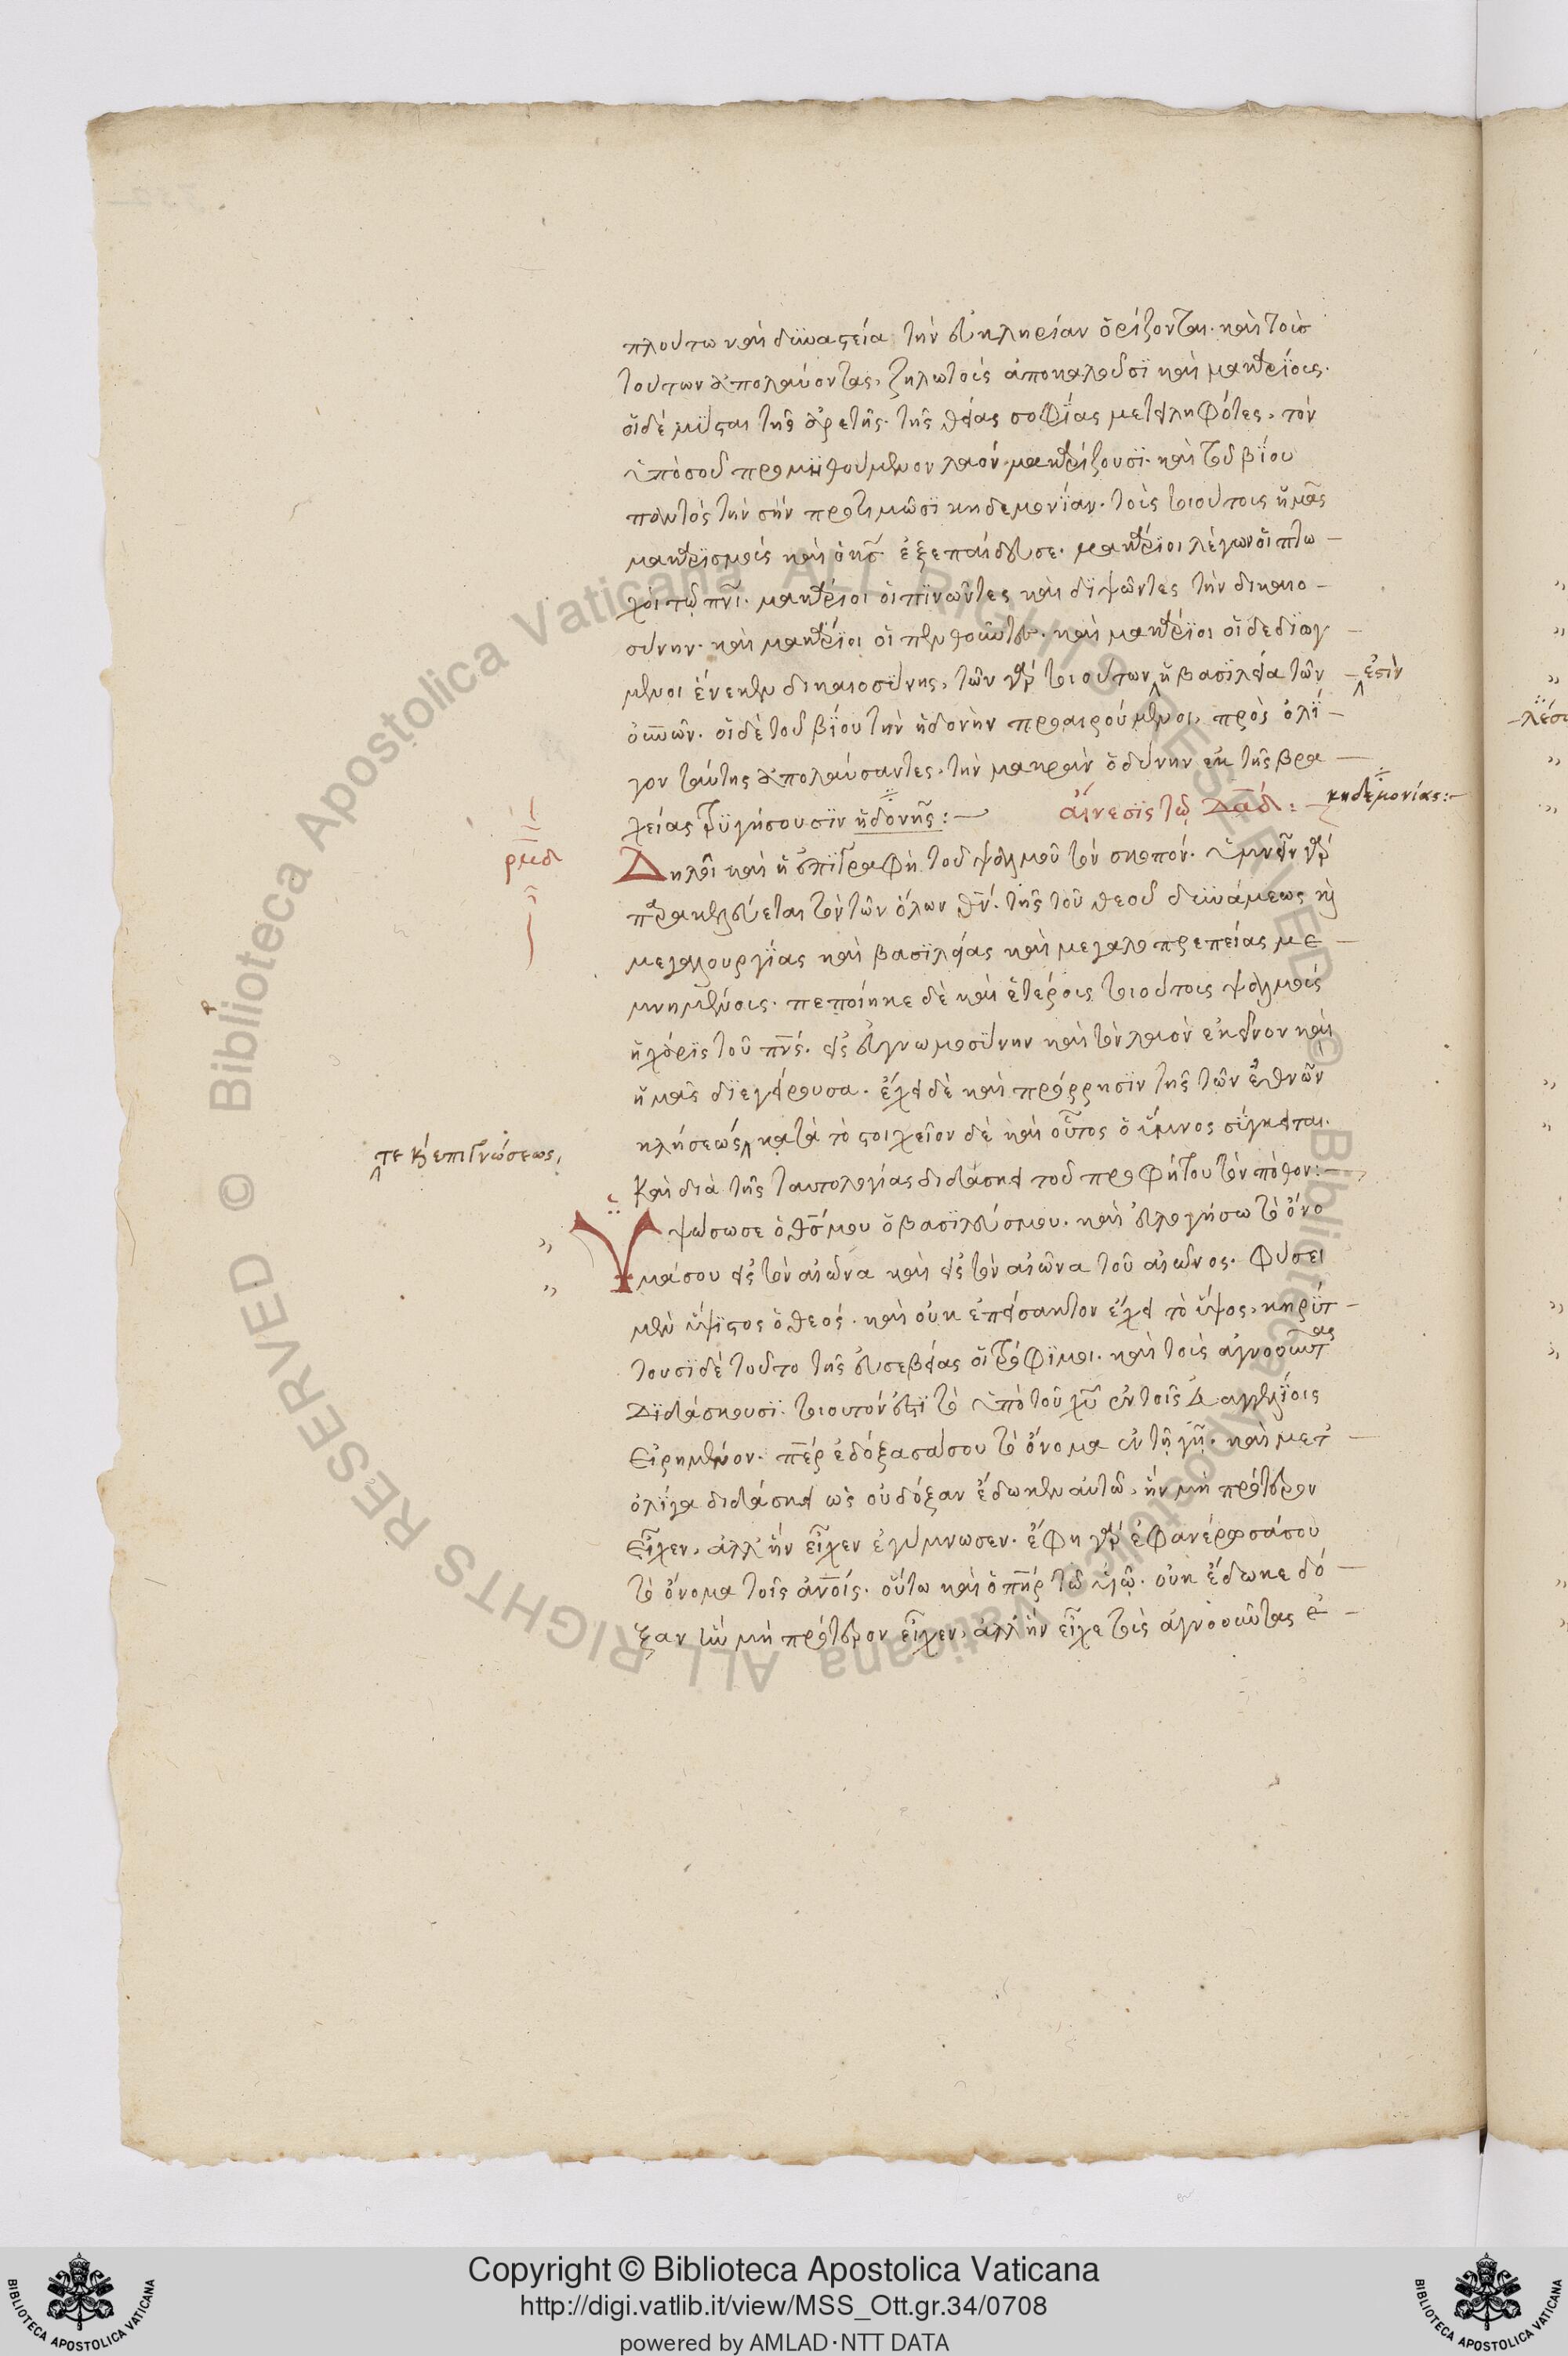 πλούτω καὶ δυναστεία τὴν εὐκληρίαν ὁρίζονται· καὶ τοὺς
τούτων ἀπολαύοντας, ζηλωτοὺς ἀποκαλοῦσι καὶ μακαρίους·
οἱ δὲ μύσται τῆς ἀρετῆς· τῆς θείας σοφίας μετειληφότες, τὸν
ὑπὸ σοῦ προμηθούμενον λαὸν μακαρίζουσι· καὶ τοῦ βίου
παντὸς τὴν σὴν προτιμῶσι κηδεμονίαν· τοῖς τοιούτοις ἡμᾶς
μακαρισμοῖς καὶ ὁ κς ἐξεπαίδευσε· μακάριοι λέγων οἱ πτω
χοὶ τῷ πνι· μακάριοι οἱ πινῶντες καὶ διψῶντες τὴν δικαιο
σύνην· καὶ μακάριοι οἱ πενθοῦντες· καὶ μακάριοι οἱ δεδιωγ
μένοι ἕνεκεν δικαιοσύνης, τῶν γὰρ τοιούτων ἡ βασιλεία τῶν
ἐστὶν
οὐνῶν· οἱ δὲ τοῦ βίου τὴν ἡδονὴν προαιρούμενοι, πρὸς ὀλί
γον ταύτης ἀπολαύσαντες, τὴν μακρὰν ὀδύνην ἐκ τῆς βρα
χείας τρυγήσουσιν ἡδονῆς:
κηδεμονίας:
αἴνεσις τῷ Δαδ:
ρμδ
Δηλοῖ καὶ ἡ ἐπιγραφὴ τοῦ ψαλμοῦ τὸν σκοπόν· ὑμνεῖν γὰρ
παρακελεύεται τὸν τῶν ὅλων θν· τῆς τοῦ θεοῦ δυνάμεως καὶ
μεγαλουργίας καὶ βασιλείας καὶ μεγαλοπρεπείας με
μνημένους· πεποίηκε δὲ καὶ ἑτέροις τοιούτοις ψαλμοῖς
ἡ χάρις τοῦ πνς· εἰς εὐγνωμοσύνην καὶ τὸν λαὸν ἐκεῖνον καὶ
ἡμᾶς διεγείρουσα· ἔχει δὲ καὶ πρόρρησιν τῆς τῶν ἐθνῶν
κλήσεως, κατὰ τὸ στοιχεῖον δὲ καὶ οὗτος ὁ ὕμνος σύγκειται·
τε καὶ ἐπιγνώσεως,
καὶ διὰ τῆς ταυτολογίας διδάσκει τοῦ προφήτου τὸν πόθον:
Υψώσω σε ὁ θς μου ὁ βασιλεύς μου· καὶ εὐλογήσω τὸ ὄνο
μά σου εἰς τὸν αἰῶνα καὶ εἰς τὸν αἰῶνα τοῦ αἰῶνος· φύσει
μὲν ὕψιστος ὁ θεός· καὶ οὐκ ἐπείσακτον ἔχει τὸ ὕψος, κηρύτ
τουσι δὲ τοῦτο τῆς εὐσεβείας οἱ τρόφιμοι· καὶ τοὺς ἀγνοοῦντας
διδάσκουσι· τοιοῦτόν ἐστι τὸ ὑπὸ τοῦ χυ ἐν τοῖς εὐαγγελίοις
εἰρημένον· περ ἐδόξασά σου τὸ ὄνομα ἐν τῇ γῇ· καὶ μετ'
ὀλίγα διδάσκει ὡς οὐ δόξαν ἔδωκεν αὐτῶ, ἣν μὴ πρότερον
εἶχεν, ἀλλ' ἣν εἶχεν ἐγύμνωσεν· ἔφη γὰρ ἐφανέρωσά σου
τὸ ὄνομα τοῖς ἀνοις· οὕτω καὶ ὁ πηρ τῶ υἱῷ· οὐκ ἔδωκε δό
ξαν ἣν μὴ πρότερον εἶχεν, ἀλλ' ἣν εἶχε τοὺς ἀγνοοῦντας ἐ
Copyright © Biblioteca Apostolica Vaticana
http://digi.vatlib.it/view/MSS_Ott.gr.34/0708
powered by AMLAD·NTT DATA